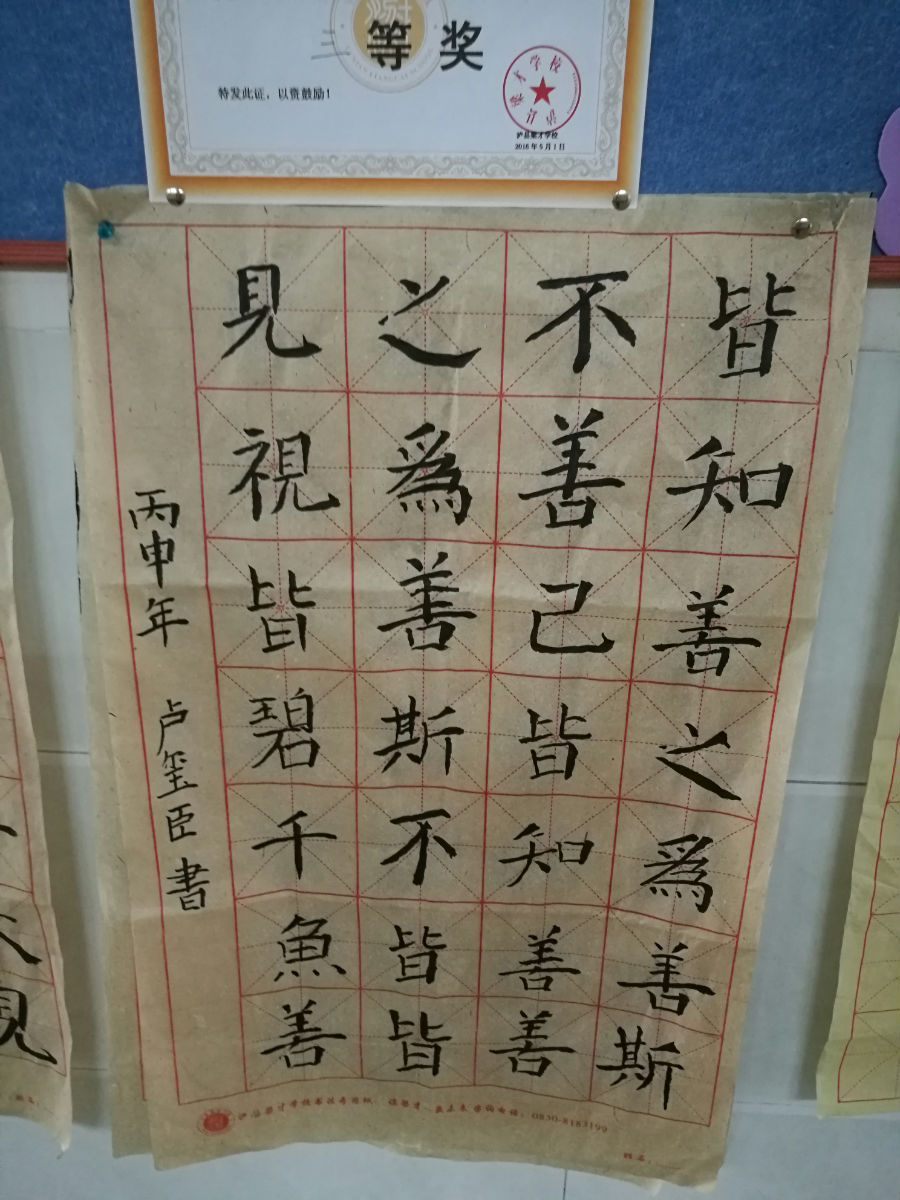 三等奖
特发此证，以资鼓励！
泸县梁才学校
2016年5月1日
皆知善之為善斯
不善己皆知善善
之為善斯不皆皆
見視皆碧千魚善
丙申年 卢玺臣書
泸县梁才学校书法专用纸
0830-8183199
姓名：